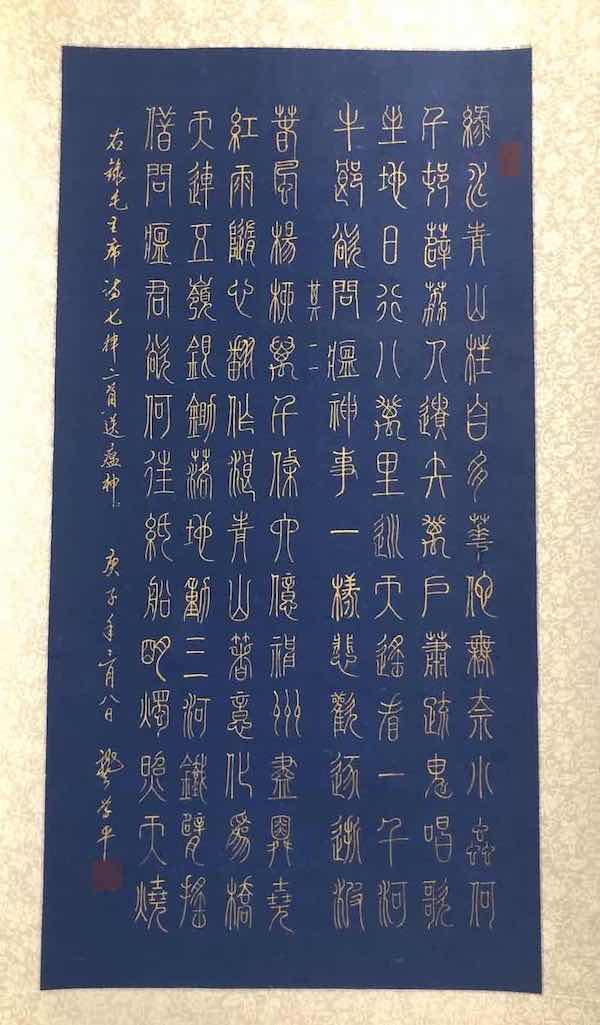 綠水青山枉自多華佗無奈小蟲何
千村薜荔人遺矢萬戶蕭疏鬼唱歌
坐地日行八萬里巡天遙看一千河
牛郎欲問瘟神事一樣悲歡逐逝波
其二
春風楊柳萬千條六億神州盡舜堯
紅雨隨心翻作浪青山著意化為橋
天連五嶺銀鋤落地動三河鐵臂搖
借問瘟君欲何往紙船明燭照天燒
右錄毛主席詩七律二首送瘟神 庚子年二月八日 龔学平